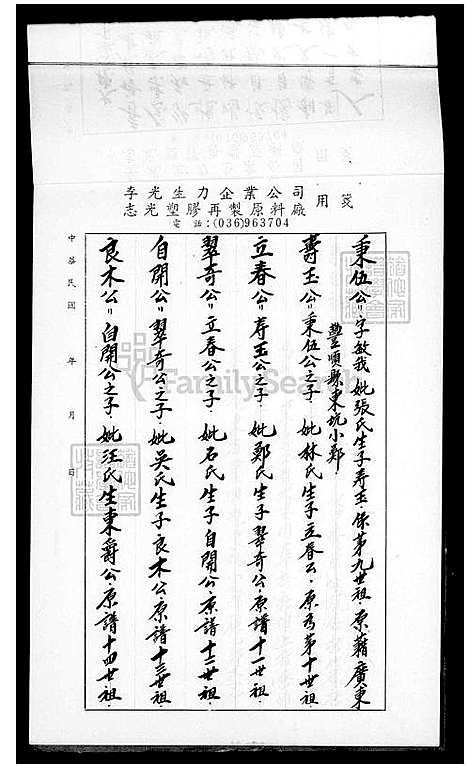 李光生力企業公司
志光塑膠再製原料廠 用箋
電話:(036)963704
秉伍公〃字敏我 妣張氏生子寿玉·係第九世祖·原籍廣東
豐順縣東坑小鄭·
壽玉公〃秉伍公之子· 妣林氏生子立春公·原為第十世祖·
立春公〃寿玉公之子· 妣鄭氏生子翠奇公·原譜十一世祖·
翠奇公〃立春公之子· 妣石氏生子自開公·原譜十二世祖·
自開公〃翠奇公之子· 妣吳氏生子良木公·原譜十三世祖
良木公〃自開公之子·妣汪氏生東爵公·原譜十四世祖·
中華民國 年 月 日
FamilySearch